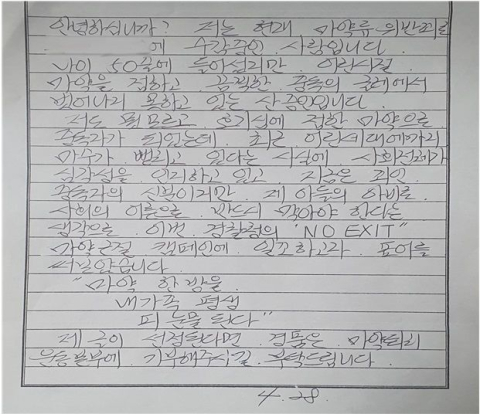 안녕하십니까? 저는 현재 마약류 위반죄로
에 수감중인 사람입니다.
나이 50줄에 들어섰지만 어린시절
마약을 접하고 끔찍한 중독의 굴레에서
벗어나지 못하고 있는 산증인입니다.
저도 뭣모르고 호기심에 접한 마약으로
중독자가 되었는데 최근 어린세대에까지
마수가 뻗치고 있다는 소식에 사회전체가
심각성을 인지하고 있고 지금은 죄인
중독자의 신분이지만 제 아들의 아비로
사회의 어른으로 반드시 막아야 한다는
생각으로 이번 경찰청의 "NO EXIT"
마약근절 캠페인에 일조하고자 표어를
써보았습니다.
"마약 한방울
내가족 평생
피눈물 된다"
제 글이 선정된다면 경품은 마약퇴치
운동본부에 기부해주시길 부탁드립니다.
4. 28.